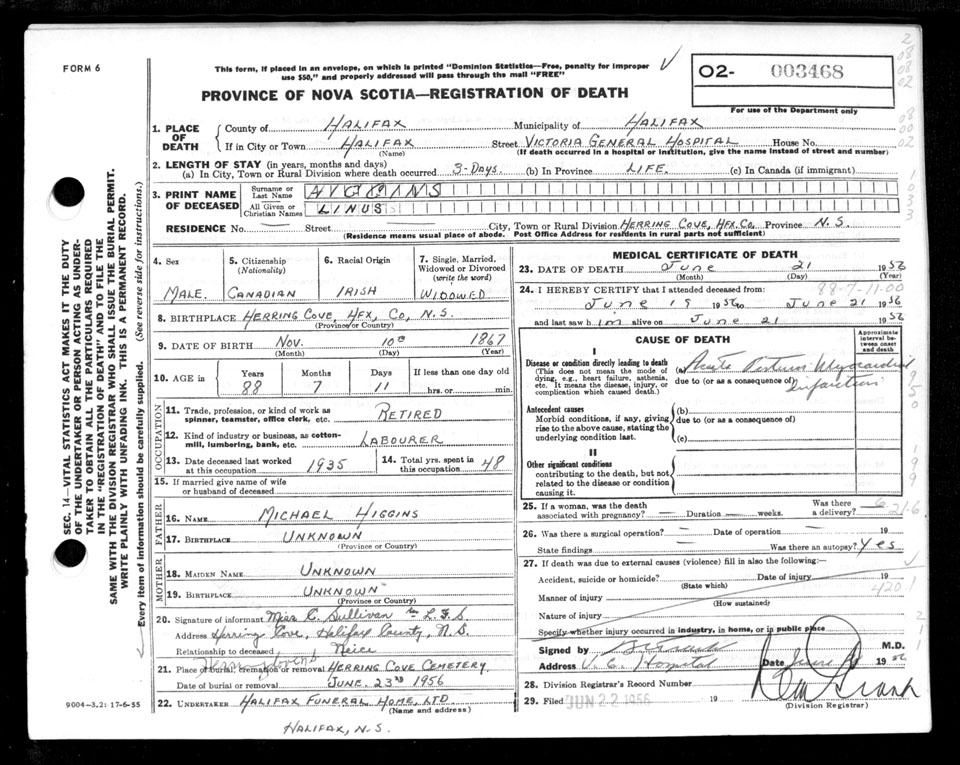 FORM 6
This form, if placed in an envelope, on which is printed "Dominion Statistics—Free, penalty for improper
use $50," and properly addressed will pass through the mail "FREE"
PROVINCE OF NOVA SCOTIA—REGISTRATION OF DEATH
O2- 003468
For use of the Department only
1. PLACE OF DEATH
County of HALIFAX Municipality of HALIFAX
If in City or Town HALIFAX Street VICTORIA GENERAL HOSPITAL House No.
(Name) (If death occurred in a hospital or institution, give the name instead of street and number)
2. LENGTH OF STAY (in years, months and days)
(a) In City, Town or Rural Division where death occurred 3-DAYS. (b) In Province LIFE. (c) In Canada (if immigrant)
3. PRINT NAME OF DECEASED
Surname or Last Name HIGGINS
All Given or Christian Names LINUS
RESIDENCE No. — Street City, Town or Rural Division HERRING COVE, HFX. CO. Province N.S.
(Residence means usual place of abode. Post Office Address for residents in rural parts not sufficient)
4. Sex
MALE.
5. Citizenship
(Nationality)
CANADIAN
6. Racial Origin
IRISH
7. Single, Married,
Widowed or Divorced
(write the word)
WIDOWED
8. BIRTHPLACE HERRING COVE, HFX, CO, N.S.
(Province or Country)
9. DATE OF BIRTH NOV. 10th 1867
(Month) (Day) (Year)
10. AGE in Years Months Days If less than one day old
88 7 11 hrs. or min.
OCCUPATION
11. Trade, profession, or kind of work as
spinner, teamster, office clerk, etc. RETIRED
12. Kind of industry or business, as cotton-
mill, lumbering, bank, etc. LABOURER
13. Date deceased last worked
at this occupation 1935
14. Total yrs. spent in
this occupation 48
15. If married give name of wife
or husband of deceased
FATHER
16. NAME MICHAEL HIGGINS
17. BIRTHPLACE UNKNOWN
(Province or Country)
MOTHER
18. MAIDEN NAME UNKNOWN
19. BIRTHPLACE UNKNOWN
(Province or Country)
20. Signature of informant Miss C. Sullivan Per L.F.S
Address Herring Cove, Halifax County, N.S.
Relationship to deceased Neice
21. Place of burial, cremation or removal HERRING COVE CEMETERY.
Date of burial or removal JUNE. 23rd 1956
22. UNDERTAKER HALIFAX FUNERAL HOME, LTD.
(Name and address)
HALIFAX, N.S.
9004-3.2: 17-6-55
SEC. 14—VITAL STATISTICS ACT MAKES IT THE DUTY
OF THE UNDERTAKER OR PERSON ACTING AS UNDER-
TAKER TO OBTAIN ALL THE PARTICULARS REQUIRED
IN THE "REGISTRATION OF DEATH" AND TO FILE THE
SAME WITH THE DIVISION REGISTRAR WHO SHALL ISSUE THE BURIAL PERMIT.
WRITE PLAINLY WITH UNFADING INK. THIS IS A PERMANENT RECORD.
Every item of information should be carefully supplied. (See reverse side for instructions.)
MEDICAL CERTIFICATE OF DEATH
23. DATE OF DEATH June 21 1956
(Month) (Day) (Year)
24. I HEREBY CERTIFY that I attended deceased from: 88-7-11-00
June 19 1956 to June 21 1956
and last saw him alive on June 21 1956
CAUSE OF DEATH
Approximate
interval be-
tween onset
and death
I
Disease or condition directly leading to death
(This does not mean the mode of
dying, e.g., heart failure, asthenia,
etc. It means the disease, injury, or
complication which caused death.)
(a) Acute Myocardial
due to (or as a consequence of) Infarction
Antecedent causes
Morbid conditions, if any, giving
rise to the above cause, stating the
underlying condition last.
(b)
due to (or as a consequence of)
(c)
II
Other significant conditions
contributing to the death, but not
related to the disease or condition
causing it.
25. If a woman, was the death
associated with pregnancy? — Duration — weeks. Was there
a delivery?
26. Was there a surgical operation? — Date of operation — 19
State findings — Was there an autopsy? Yes
27. If death was due to external causes (violence) fill in also the following:
Accident, suicide or homicide? Date of injury 19
(State which)
4201
Manner of injury
(How sustained)
Nature of injury
Specify whether injury occurred in industry, in home, or in public place
Signed by M.D.
Address V.G. Hospital Date June 1956
28. Division Registrar's Record Number
29. Filed JUN 22 1956 19
(Division Registrar)